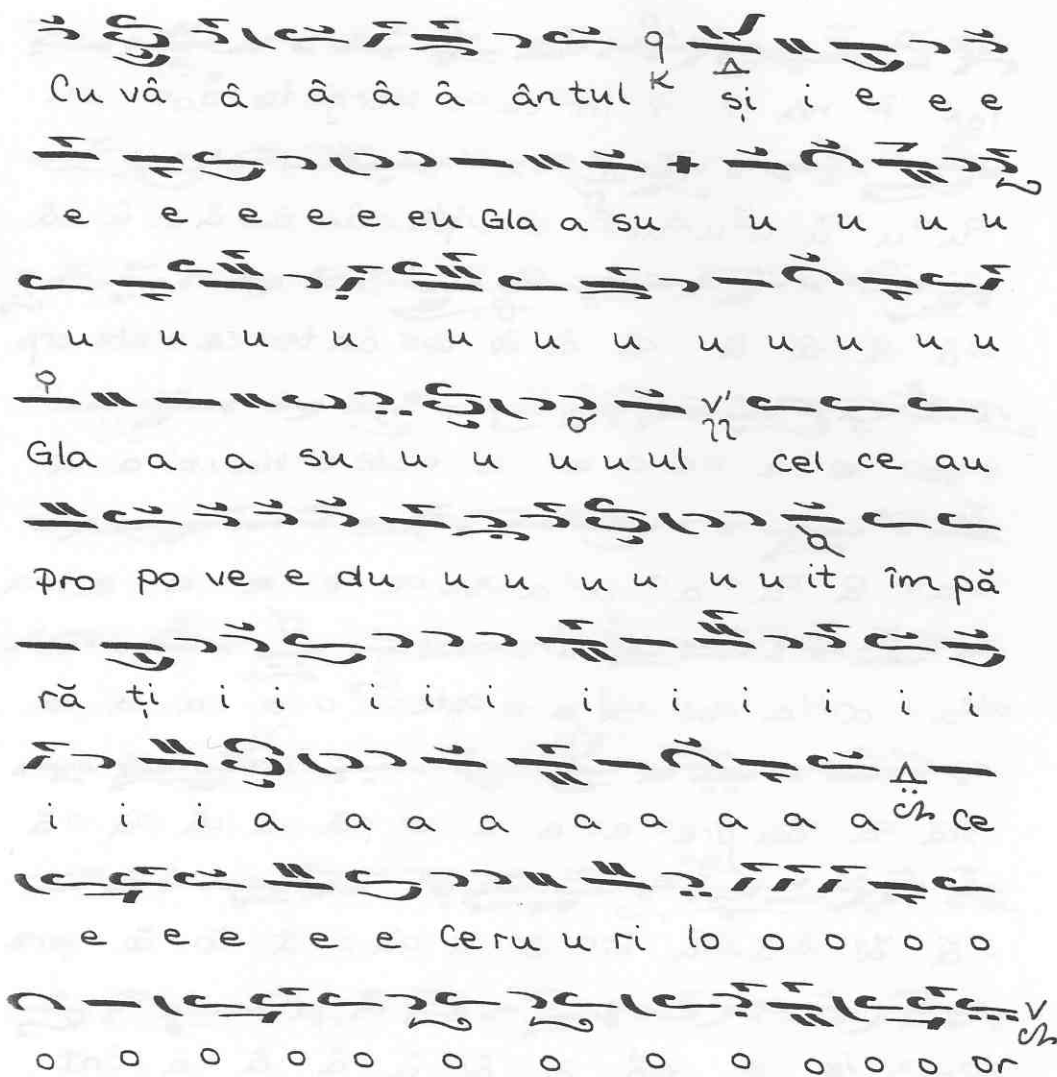 Cu vâ â â â â ântul K și i e e e
e e e e e eu Gla a su u u u u
u u u u u u u u u u u u
Gla a a su u u u u ul cel ce au
Pro po ve e du u u u u u u it îm pă
ră ți i i i i i i i i i i i
i i i a a a a a a a a a a Ce
e e e e e Ce ru u ri lo o o o o
o o o o o o o o o o o o or